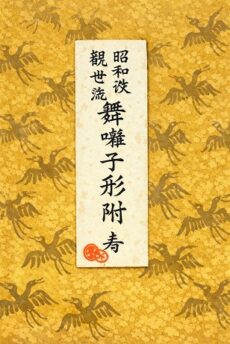 昭和改
觀世流
舞囃子形附 寿